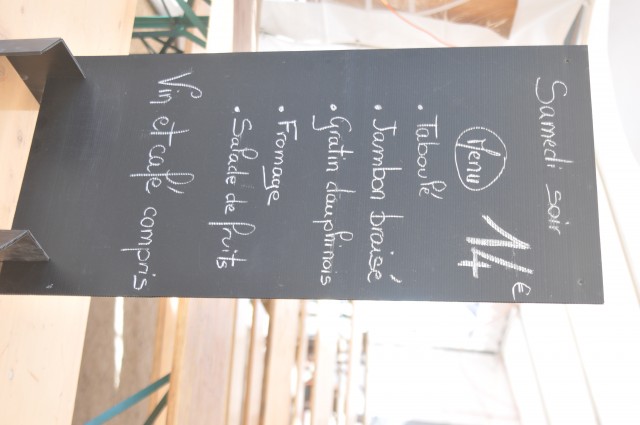 Samedi soir
Menu 14€
• Taboulé
• Jambon braisé
• Gratin dauphinois
• Fromage
• Salade de fruits
Vin et café compris